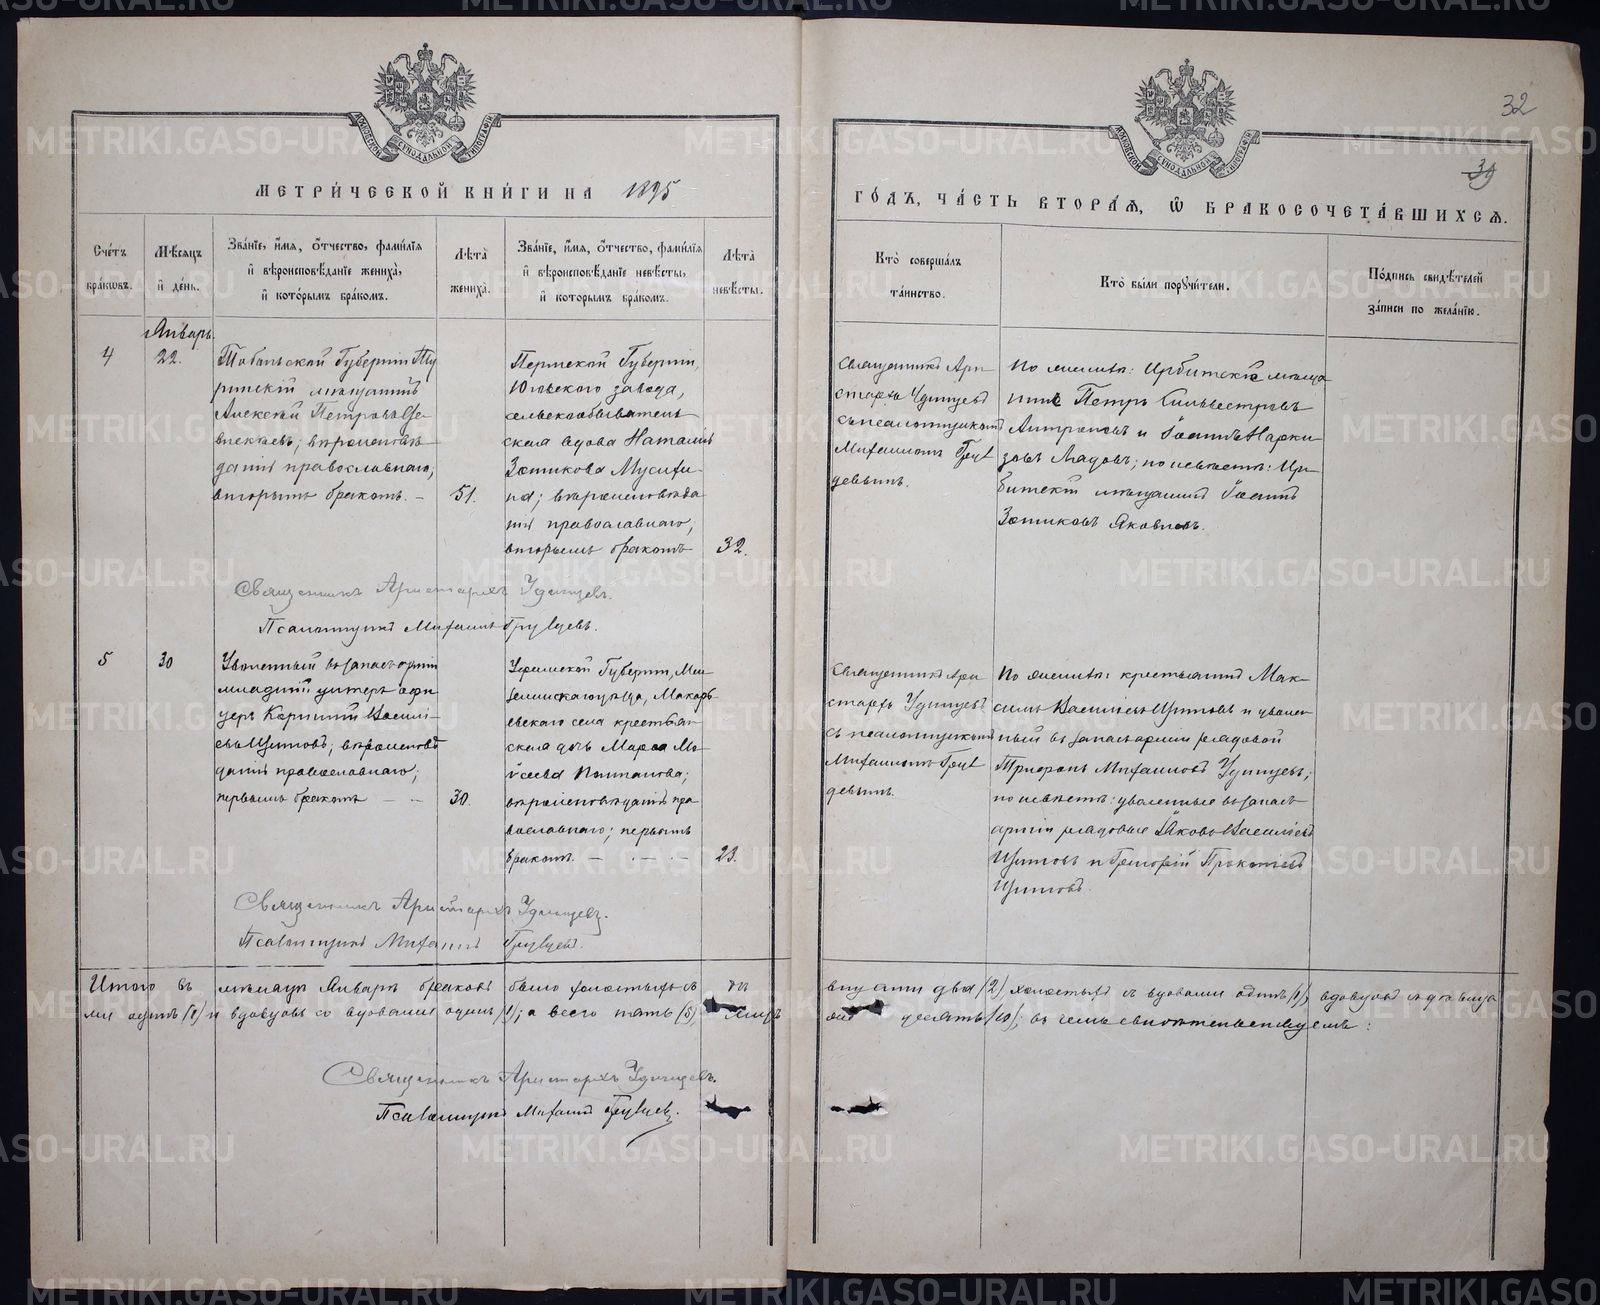 32
39
МОСКОВСКОЙ СУНОДАЛЬНОЙ ТИПОГРАФІИ
МОСКОВСКОЙ СУНОДАЛЬНОЙ ТИПОГРАФІИ
МЕТРИ́ЧЕСКОЙ КНИ́ГИ НА 1895
ГО́ДЪ, ЧА́СТЬ ВТОРА́Я, Ѽ БРАКОСОЧЕТА́ВШИХСЯ.
Сче́тъ бра́кѡвъ.
Мѣ́сяцъ и҆ де́нь.
Зва́ніе, и҆́мя, ѻ҆́тчество, фами́лія
и҆ вѣроисповѣ́даніе жениха̀,
и҆ кото́рымъ бра́комъ.
Лѣ́та жениха̀.
Зва́ніе, и҆́мя, ѻ҆́тчество, фами́лія
и҆ вѣроисповѣ́даніе невѣ́сты,
и҆ которымъ бра́комъ.
Лѣ́та невѣ́сты.
Кто̀ соверша́лъ
та́инство.
Кто̀ бы́ли поручи́тели.
По́дпись свидѣ́телей
за́писи по жела́нію.
Январь.
4
22.
Тобольской Губерніи Ту
ринскій мѣщанинъ
Алексѣй Петровъ Фе
; вѣроисповѣ-
данія православнаго,
вторымъ бракомъ. –
51.
Пермской Губерніи,
Юговского завода,
сельскообыватель-
ская вдова Наталія
Зотикова Мусихи-
на; вѣроисповѣда
нія православнаго,
вторымъ бракомъ
32.
Священникъ Ари
стархъ Удинцевъ
съ псаломщикомъ
Михаиломъ Груз
девымъ.
По женихѣ: Ирбитскіе мѣща
нинъ Петръ Сильвестровъ
Антроповъ и Іоаннъ Нарки
зовъ Лядовъ; по невѣстѣ: Ир-
битскій мѣщанинъ Іоаннъ
Зотиковъ Яковлевъ.
Священникъ Аристархъ Удинцевъ.
Псаломщикъ Михаилъ Груздевъ.
5
30
Уволенный въ запасъ арміи
младшій унтеръ офи
церъ Корнилій Васил
евъ Щитовъ; вѣроисповѣ
данія православнаго;
первымъ бракомъ – –
30.
Уфимской Губерніи, Мен
зелинскаго уѣзда, Макарь
евскаго села крестьян
ская дочь Марѳа Мо
исеева ;
вѣроисповѣданія пра
вославнаго; первымъ
бракомъ. – . – . –
23.
Священникъ Ари
стархъ Удинцевъ
съ псаломщикомъ
Михаиломъ Груз
девымъ.
По женихѣ: крестьянинъ Мак-
симъ Васильевъ Щитовъ и уволен-
ный въ запасъ арміи рядовой
Трифонъ Михаиловъ Удинцевъ;
по невѣстѣ: уволенные въ запасъ
арміи рядовые Іаковъ Васильевъ
Щитовъ и Григорій Прокопіевъ
Щитовъ.
Священникъ Аристархъ Удинцевъ.
Псаломщикъ Михаилъ Груздевъ.
Итого въ мѣсяцѣ Январѣ браковъ было холостыхъ съ дѣ
вицами два (2), холостыхъ съ вдовами одинъ (1), вдовцовъ съ дѣвица
ми одинъ (1) и вдовцовъ со вдовами одинъ (1); а всего пять (5), лицъ
десять (10); въ чемъ свидѣтельствуемъ:
Священникъ Аристархъ Удинцевъ.
Псаломщикъ Михаилъ Груздевъ.
METRIKI.GASO-URAL.RU